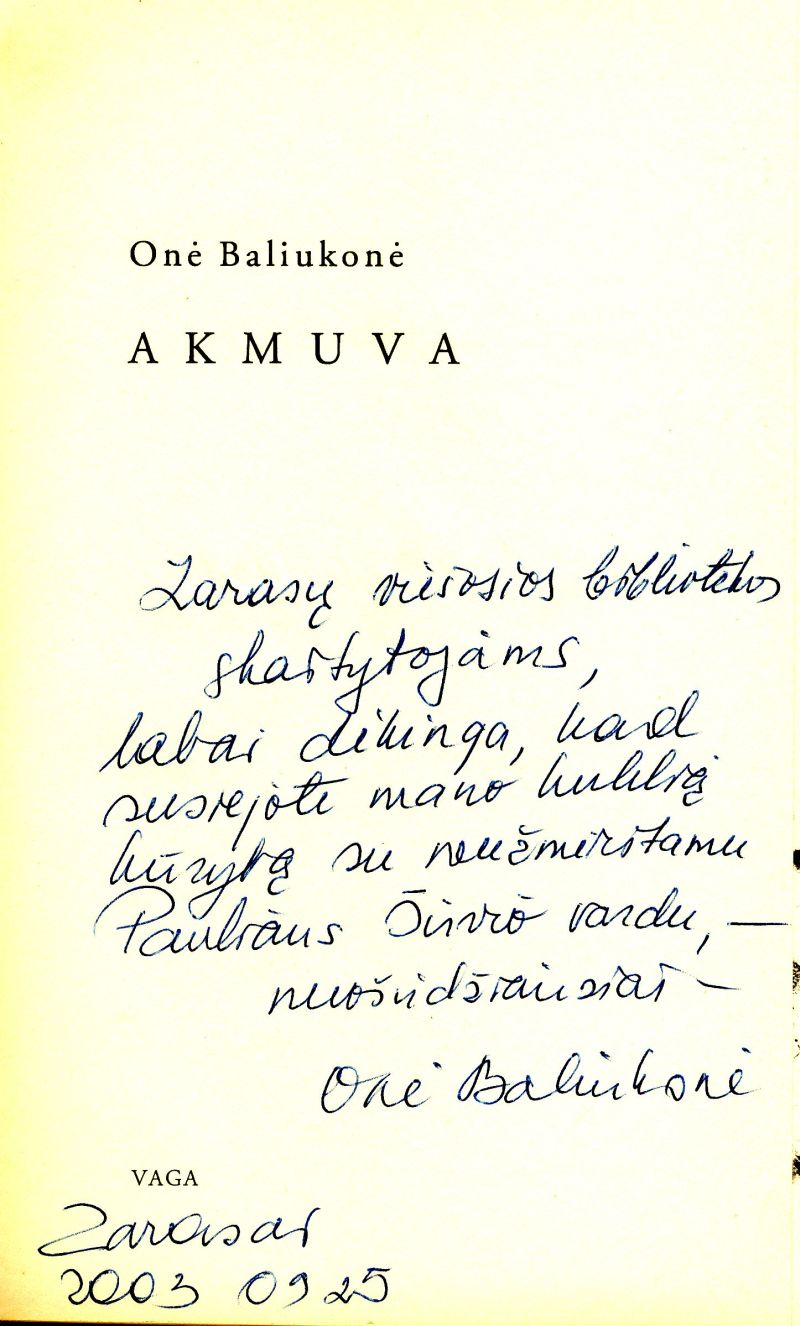 Onė Baliukonė
AKMUVA
Zarasų viešosios bibliotekos
skaitytojams,
labai dėkinga, kad
susiejote mano kuklią
kūrybą su neužmirštamu
Pauliaus Širvio vardu, —
nuoširdžiausiai —
Onė Baliukonė
VAGA
Zarasai
2003 09 25